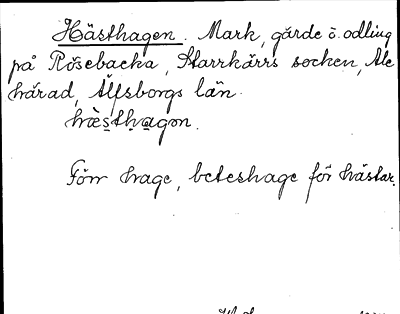 Hästhagen. Mark, gärde o. odling
på Rösebacka, Starrkärrs socken, Ale
härad, Älfsborgs län.
hæ̀sthagon.
Förr hage, beteshage för hästar.